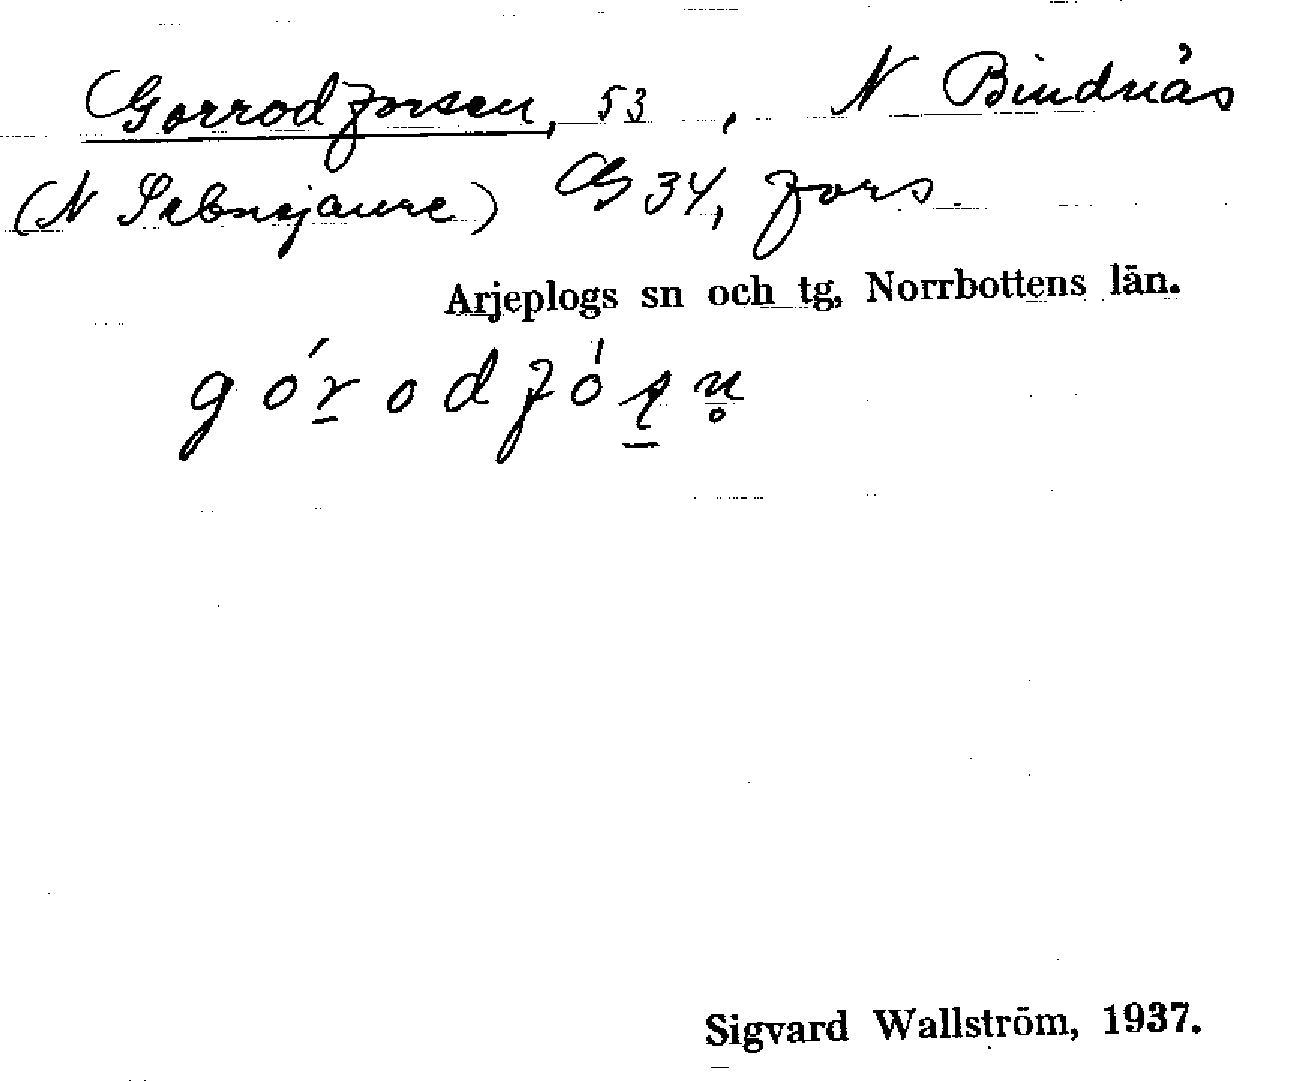 Gorrodforsen, 53, N Bindnäs
(N Sebnejaure) G 34, fors.
Arjeplogs sn och tg, Norrbottens län.
Sigvard Wallström, 1937.